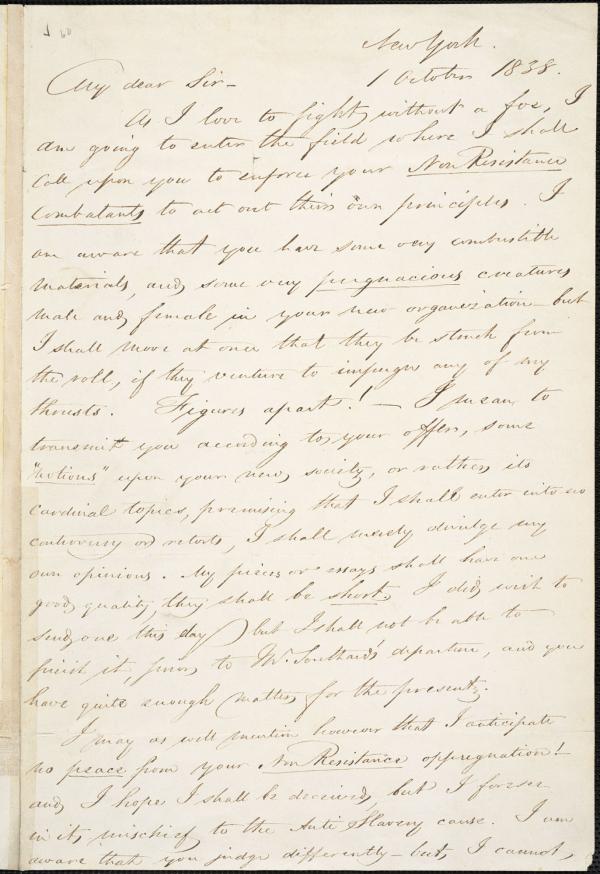 New York.
1 October 1838.
My dear Sir—
As I love to fight, without a foe, I
am going to enter the field where I shall
call upon you to enforce your Non Resistance
Combatants to act out their own principles. I
am aware that you have some very combustible
materials, and some very pugnacious creatures
male and female in your new organization—but
I shall move at once that they be struck from
the roll, if they venture to impugn any of my
thrusts. Figures apart!— I mean to
transmit you according to your offer, some
"notions" upon your new society, or rather its
cardinal topics, premising that I shall enter into no
controversy or retorts, I shall merely divulge my
own opinions. My pieces or essays shall have one
good quality, they shall be short. I did wish to
send one this day) but I shall not be able to
finish it, prior to Mr. Southard's departure, and you
have quite enough matter for the present.
I may as well mention however that I anticipate
no peace from your Non Resistance oppugnation!
and I hope I shall be deceived, but I foresee
in it, mischief to the Anti Slavery cause. I am
aware that you judge differently—but, I cannot,